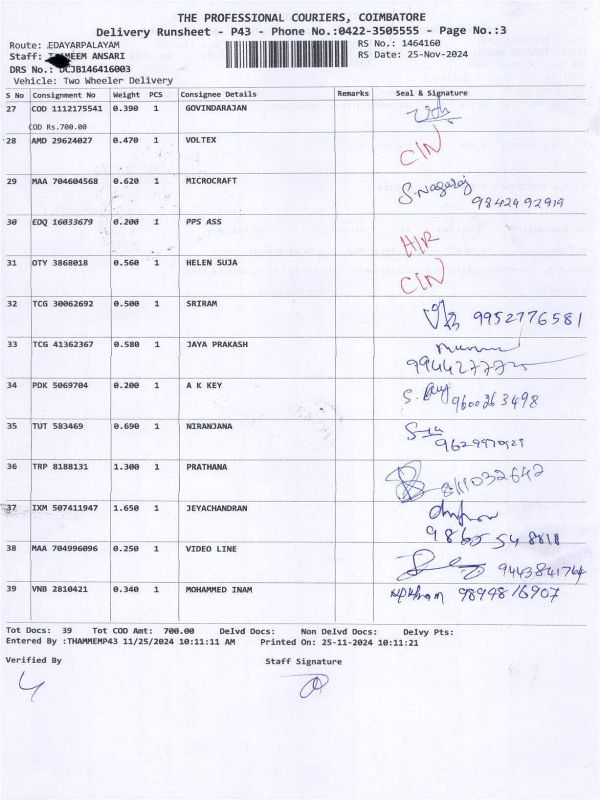 THE PROFESSIONAL COURIERS, COIMBATORE
Delivery Runsheet - P43 - Phone No.:0422-3505555 - Page No.:3
Route: EDAYARPALAYAM RS No.: 1464160
Staff: MEEM ANSARI RS Date: 25-Nov-2024
DRS No.: DCJB146416003
Vehicle: Two Wheeler Delivery
S No Consignment No Weight PCS Consignee Details Remarks Seal & Signature
27 COD 1112175541 0.390 1 GOVINDARAJAN
COD Rs.700.00
28 AMD 29624027 0.470 1 VOLTEX C/N
29 MAA 704604568 0.620 1 MICROCRAFT S. Nagaraj
9842492919
30 EDQ 16033679 0.200 1 PPS ASS H/R
31 OTY 3868018 0.560 1 HELEN SUJA C/N
32 TCG 30062692 0.500 1 SRIRAM 9952776581
33 TCG 41362367 0.580 1 JAYA PRAKASH
34 PDK 5069704 0.200 1 A K KEY 9600263498
35 TUT 583469 0.690 1 NIRANJANA
36 TRP 8188131 1.300 1 PRATHANA 8111032642
37 IXM 507411947 1.650 1 JEYACHANDRAN
9865548818
38 MAA 704996096 0.250 1 VIDEO LINE 9443841764
39 VNB 2810421 0.340 1 MOHAMMED INAM 9894816907
Tot Docs: 39 Tot COD Amt: 700.00 Delvd Docs: Non Delvd Docs: Delvy Pts:
Entered By :THAMMEMP43 11/25/2024 10:11:11 AM Printed On: 25-11-2024 10:11:21
Verified By Staff Signature